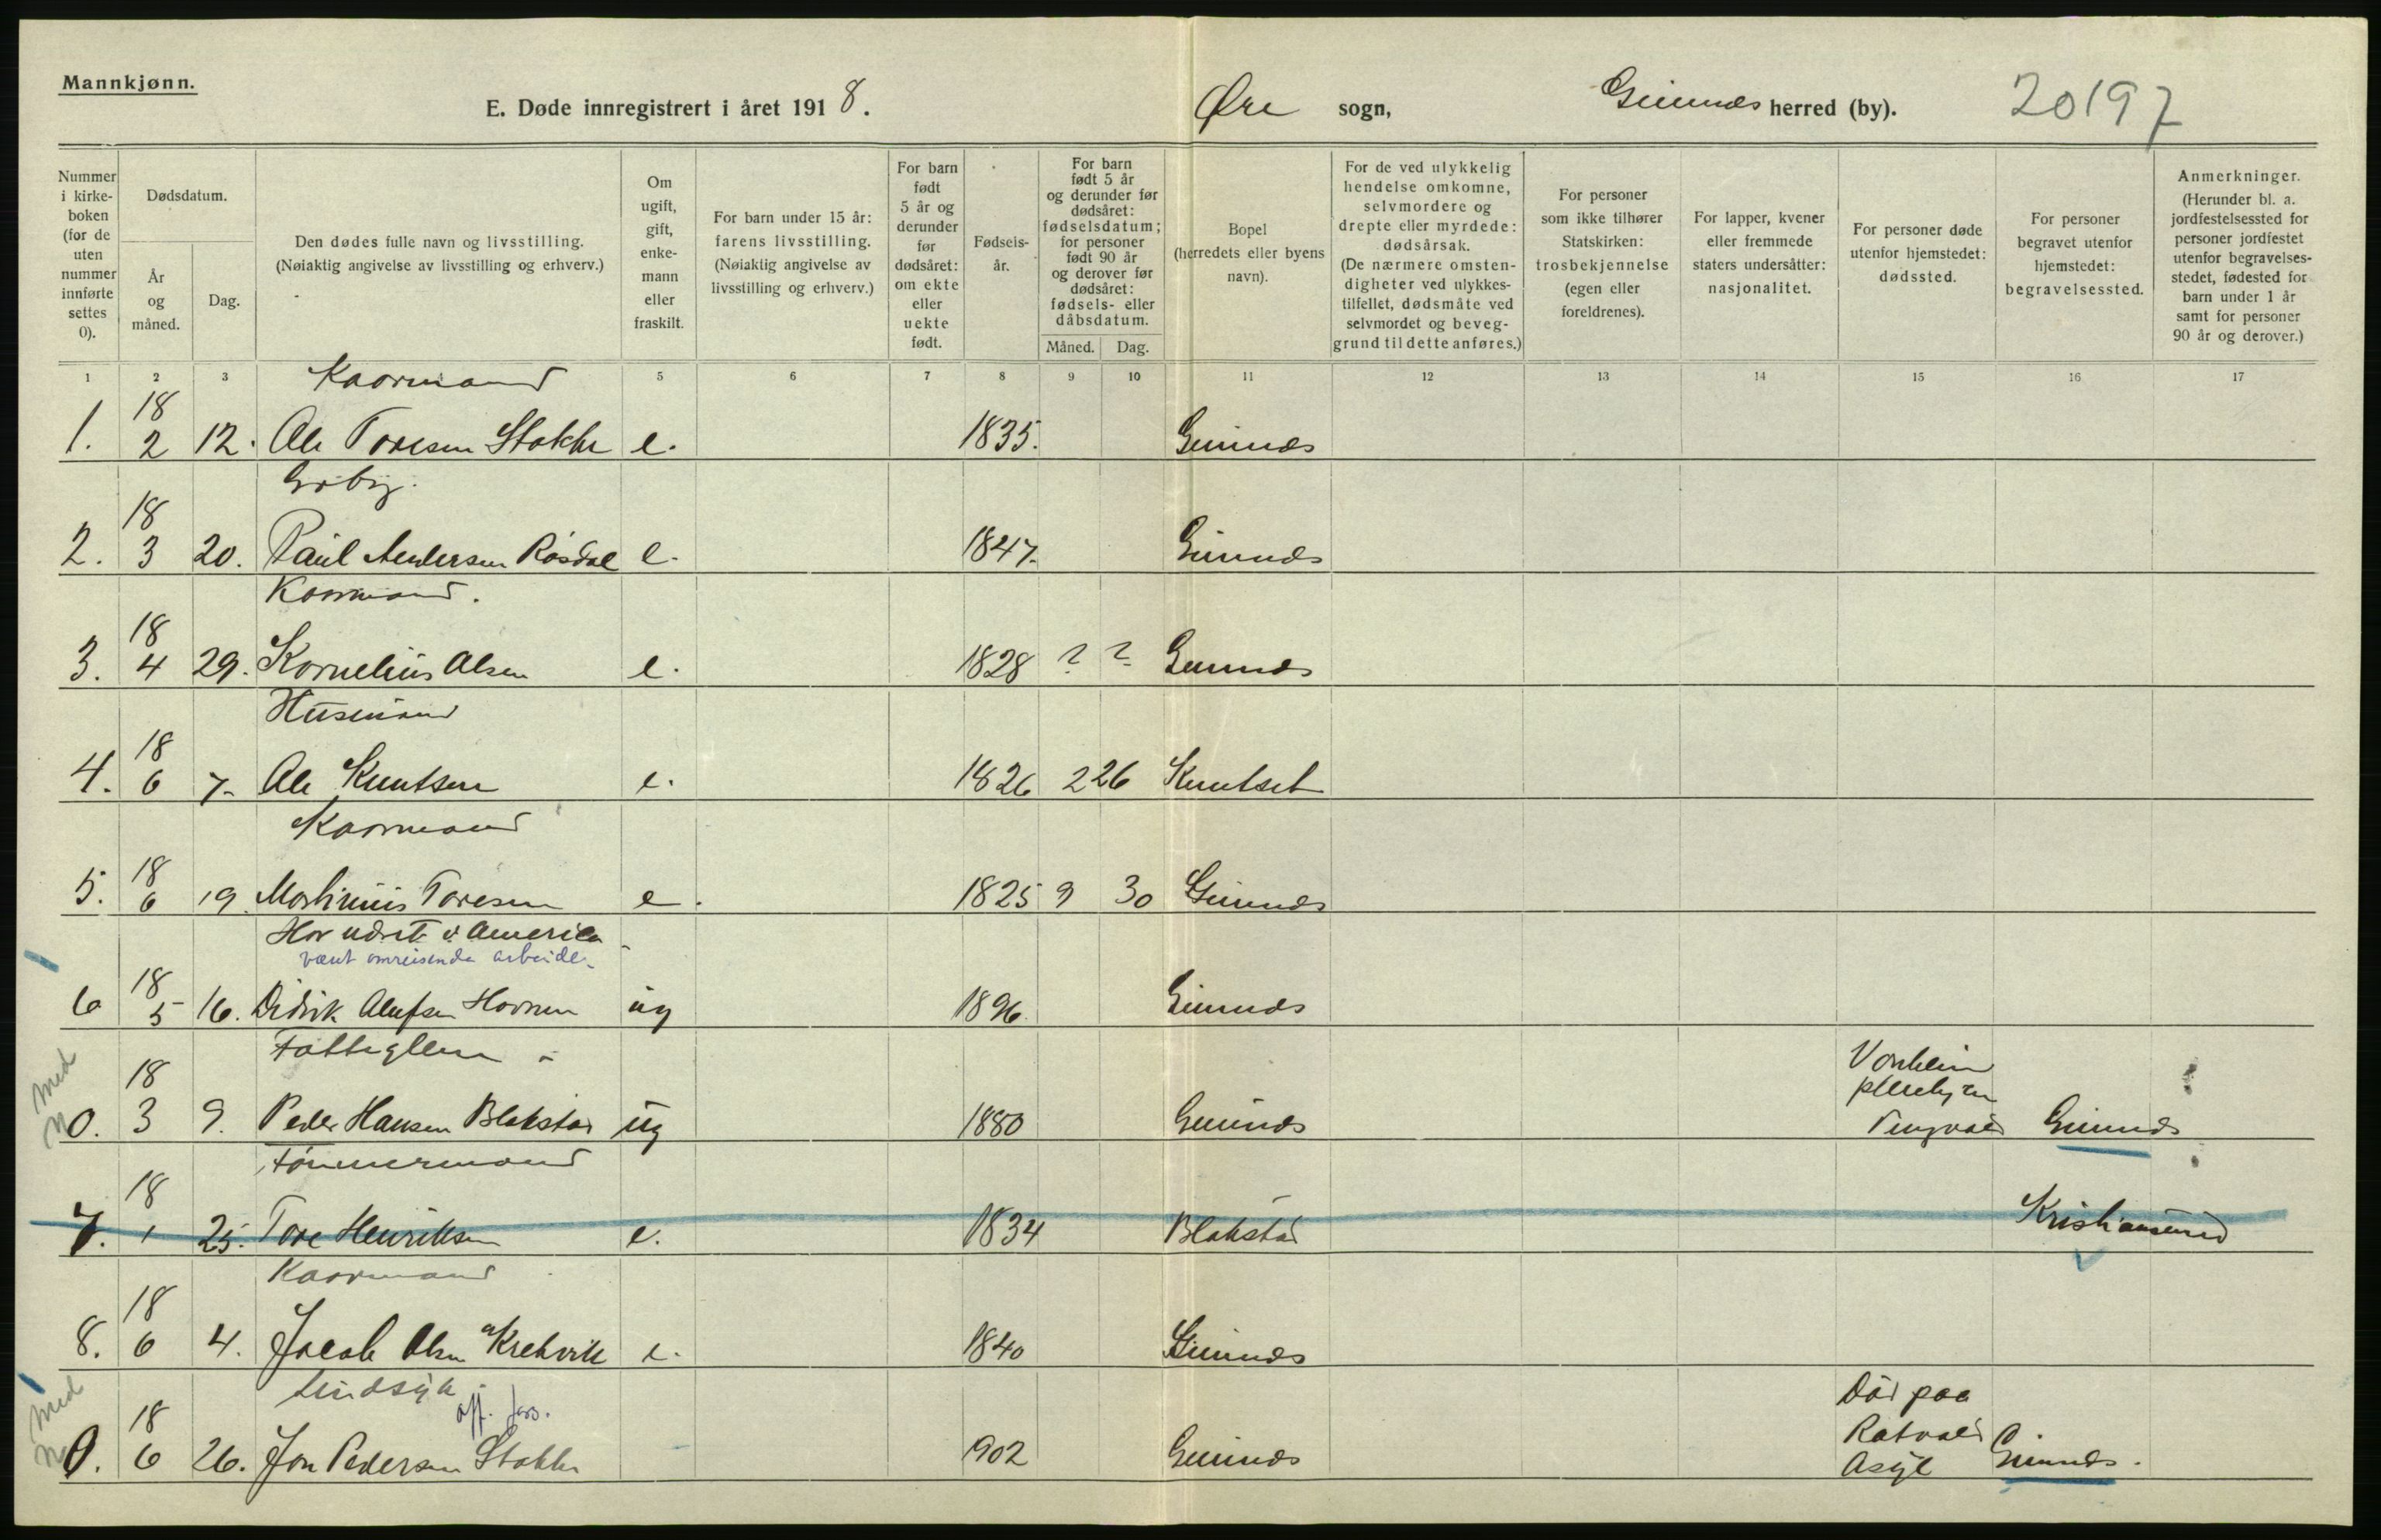 Mannkjønn.
E. Døde innregistrert i året 1918. Øre sogn, Gimnes herred (by). 20197
Nummer i kirkeboken (for de uten nummer innførte settes 0).
Dødsdatum.
År og måned.
Dag.
Den dødes fulle navn og livsstilling.
(Nøiaktig angivelse av livsstilling og erhverv.)
Om ugift, gift, enkemann eller fraskilt.
For barn under 15 år: farens livsstilling.
(Nøiaktig angivelse av livsstilling og erhverv.)
For barn født 5 år og derunder før dødsåret: om ekte eller uekte født.
Fødselsår.
For barn født 5 år og derunder før dødsåret: fødselsdatum; for personer født 90 år og derover før dødsåret: fødsels- eller dåbsdatum.
Måned. Dag.
Bopel (herredets eller byens navn).
For de ved ulykkelig hendelse omkomne, selvmordere og drepte eller myrdede: dødsårsak.
(De nærmere omstendigheter ved ulykkestilfellet, dødsmåte ved selvmordet og beveggrund til dette anføres.)
For personer som ikke tilhører Statskirken: trosbekjennelse (egen eller foreldrenes).
For lapper, kvener eller fremmede staters undersåtter: nasjonalitet.
For personer døde utenfor hjemstedet: dødssted.
For personer begravet utenfor hjemstedet: begravelsessted.
Anmerkninger.
(Herunder bl. a. jordfestelsessted for personer jordfestet utenfor begravelsesstedet, fødested for barn under 1 år samt for personer 90 år og derover.)
1 2 3 5 6 7 8 9 10 11 12 13 14 15 16 17
Kaarmand
18
1. 2 12. Ole Toresen Stokke e. 1835. Gimnes
18
2. 3 20. Paul Andersen Røsdal e. 1847. Gimnes
Kaarmand.
18
3. 4 29. Kornelius Olsen e. 1828 ? ? Gimnes
Husmand
18
6
4. 7. Ole Knutsen e. 1826 2 26 Knutset
Kaarmand
18
5. 6 19. Martinus Toresen e. 1825 9 30 Gimnes
Har været i America
vært omreisende arbeide.
18
6 5 16. Didrik Olufsen Hovnen ug 1896. Gimnes
Fattiglem
med
18
0. 3 9. Peder Hansen Blakstad ug 1880 Gimnes
Vonheim
pleiehjem
Tingvold Gimnes
Tømmermand
18
7. 1 25. Tore Henriksen e. 1834 Blakstad Kristiansund
Kaarmand
18
8. 6 4. Jacob Olsen Krekvik e. 1840 Gimnes
Sindsyk. off. fors.
med
18
0. 6 26. Jon Pedersen Stokke 902 Gimnes
Død paa
Rotvold
Asyl Gimnes.